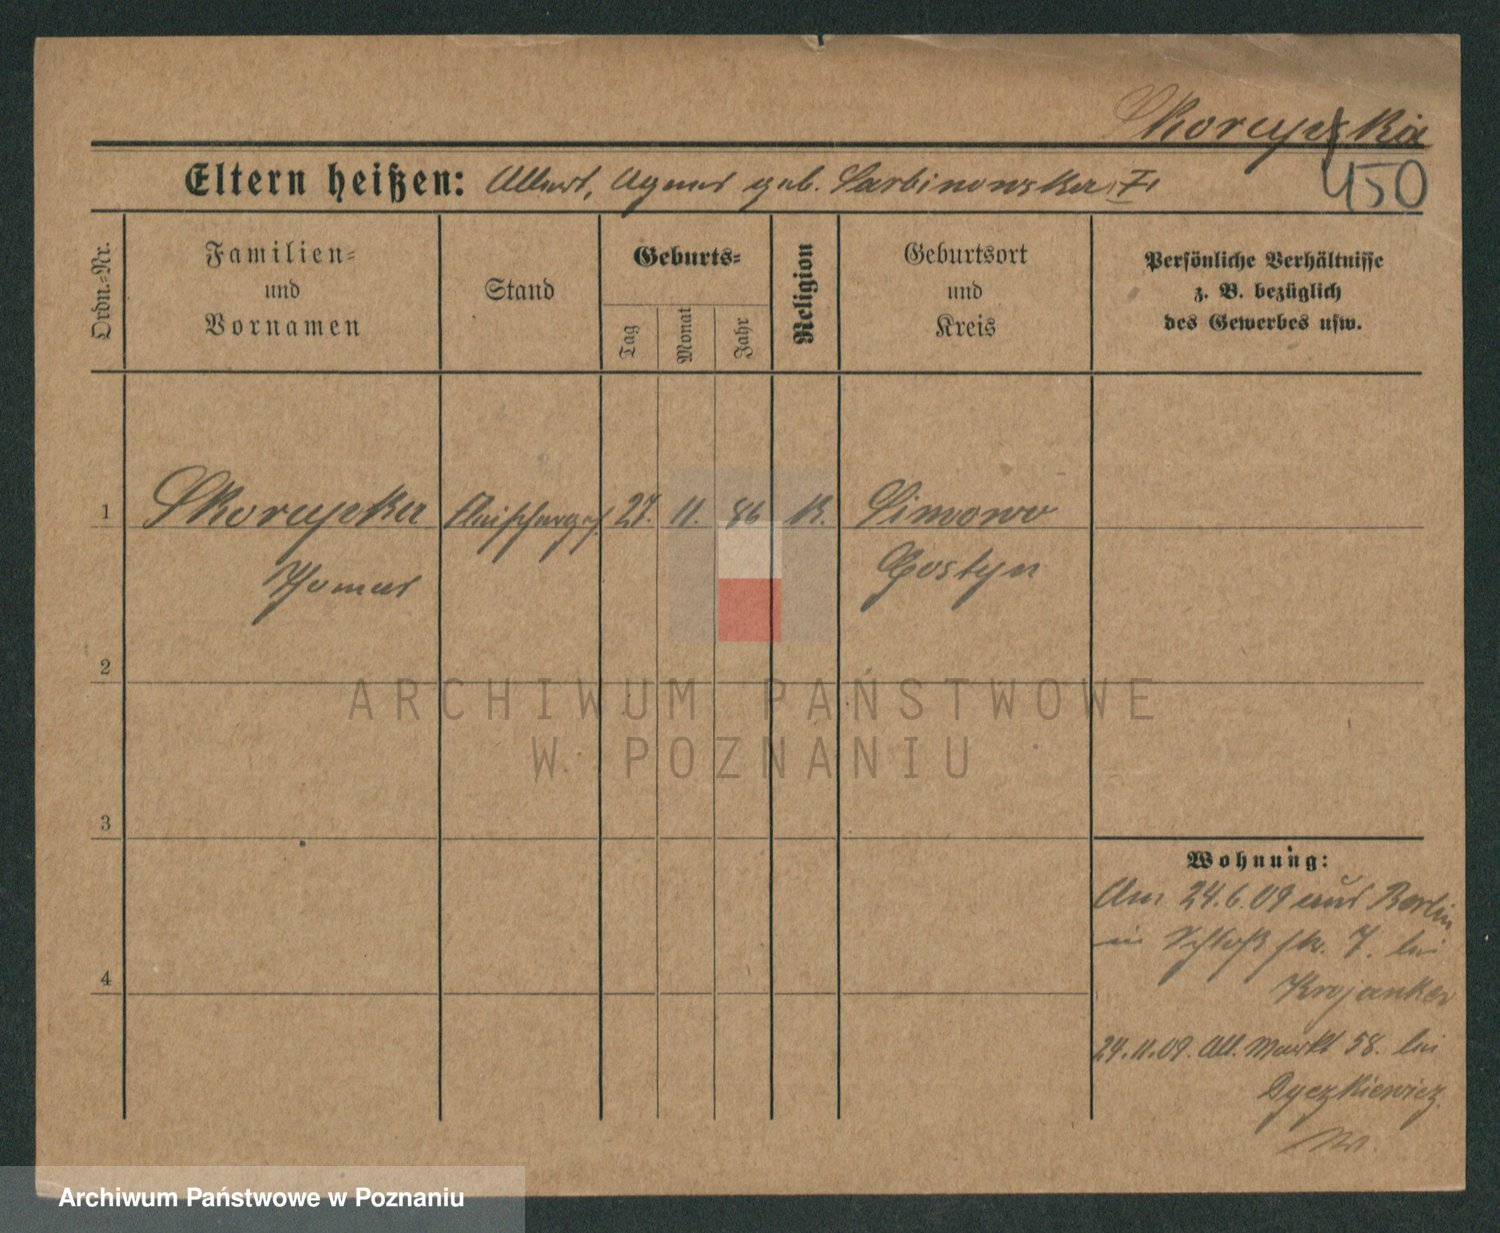 Skorcyzka
450
Eltern heißen: Albert, Agnes geb. Sarbinowska, F.
Ordn.-Nr.
Familien-
und
Vornamen
Stand
Geburts-
Tag
Monat
Jahr
Religion
Geburtsort
und
Kreis
Persönliche Verhältnisse
z. B. bezüglich
des Gewerbes usw.
1 Fleischerges. 27. 11. 86 K. Simowo
Thomas Gostyn
2
3
4
Wohnung:
Am 24.6.09 aus Berlin
in Schloßstr. 7. bei
Krojanker
24.11.09. Alt. Markt 58. bei
ARCHIWUM PAŃSTWOWE
W POZNANIU
Archiwum Państwowe w Poznaniu